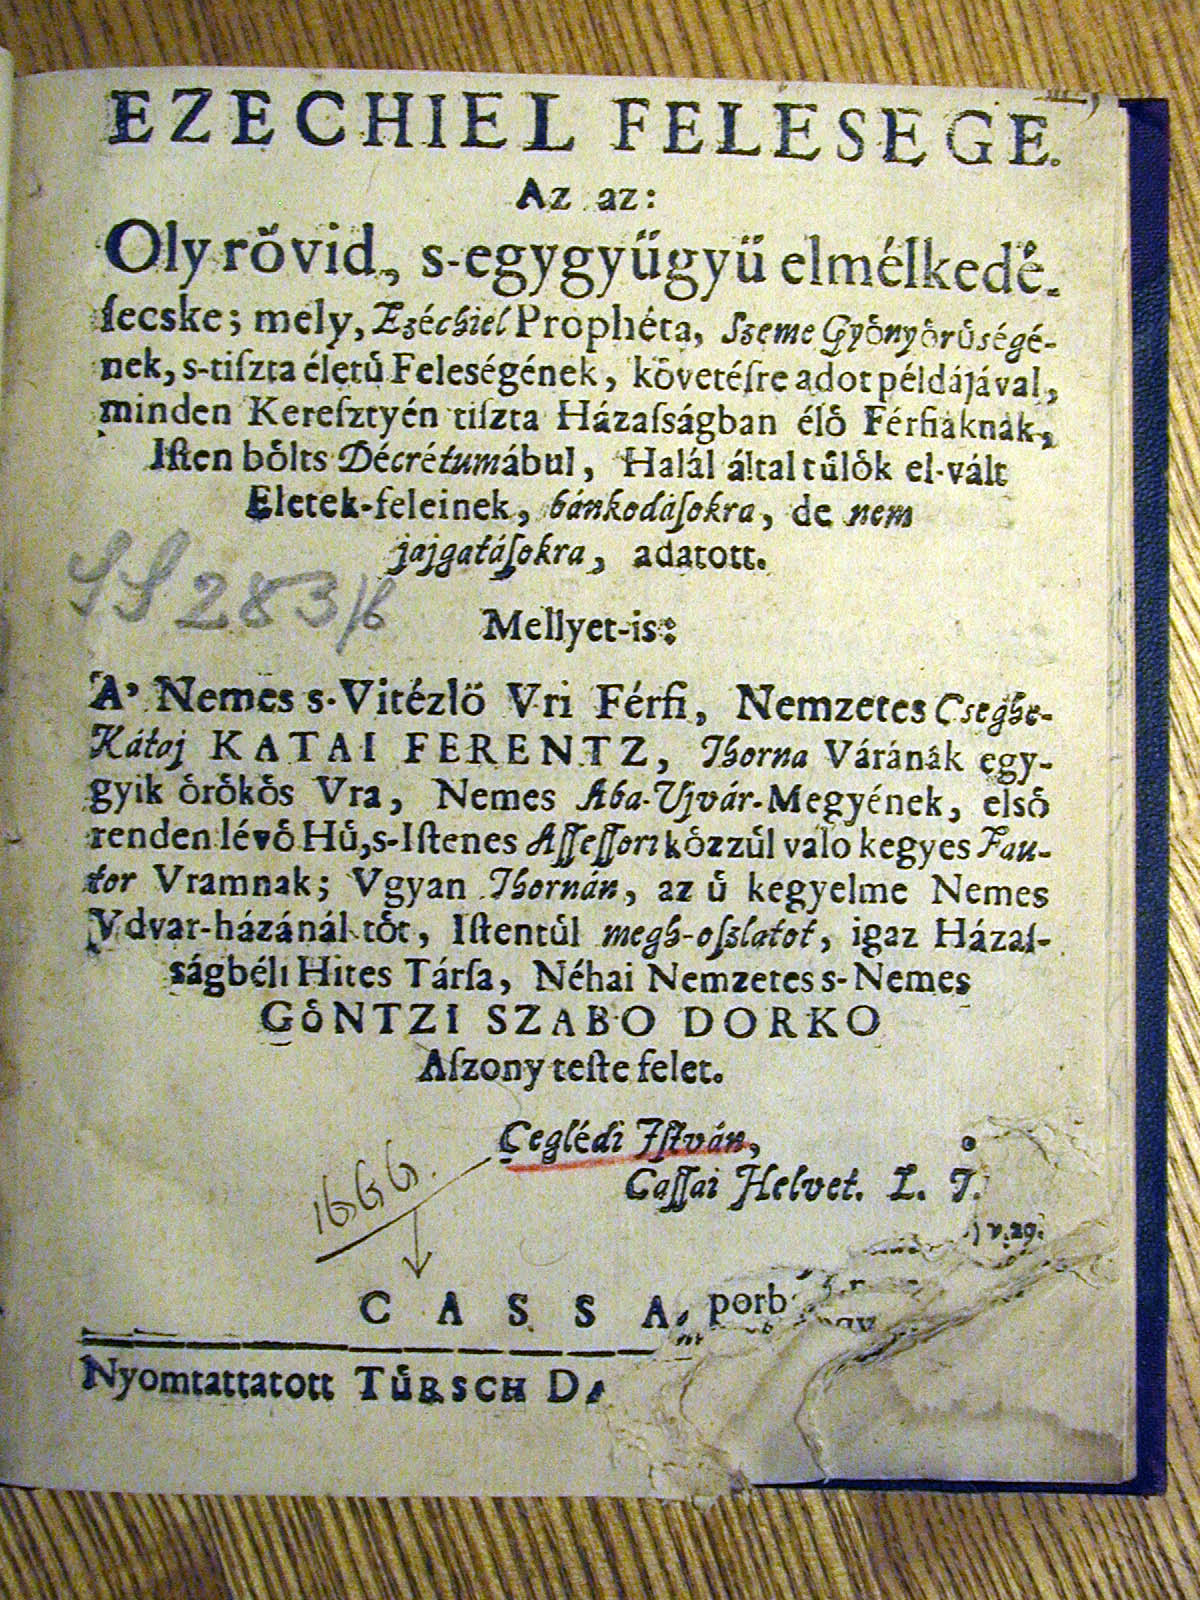 EZECHIEL FELESEGE.
Az az:
Oly rővid, s-egygyűgyű elmélkedé-
ſecske; mely, Ezéchiel Prophéta, Szeme Gyȯnyȯrűségé-
nek, s-tiſzta életű Feleségének, kȯvetéſre adot példájával,
minden Kereſztyén tiſzta Házaſságban élȯ Férfiaknak,
Iſten bȯlts Décrétumábul, Halál által tűlȯk el-vált
Eletek-feleinek, bánkodáſokra, de nem
jajgatáſokra, adatott.
SS 283/b
Mellyet-is:
A' Nemes s-Vitézlö Vri Férfi, Nemzetes Csegbe-
Kátaj KATAI FERENTZ, Thorna Várának egy-
gyik ȯrȯkȯs Vra, Nemes Aba-Vjvár-Megyének, elsȯ
renden lévȯ Hű, s-Iſtenes Aſſeſſori kȯzzűl valo kegyes Fau-
tor Vramnak; Vgyan Thornán, az ű kegyelme Nemes
Vdvar-házánál tȯt, Iſtentűl megh-oſzlatot, igaz Házaſ-
ságbéli Hites Társa, Néhai Nemzetes s-Nemes
GȯNTZI SZABO DORKO
Aſzony teſte felet.
Ceglédi Iſtván,
Caſſai Helvet. L. I.
1666.
v. 29.
CASSA, porb
Nyomtattatott TűRSCH D